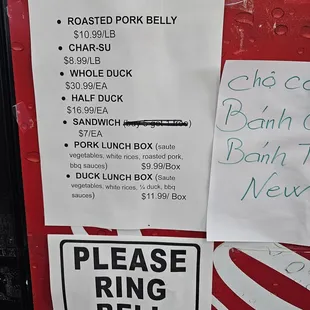 • ROASTED PORK BELLY
$10.99/LB
• CHAR-SU
$8.99/LB
• WHOLE DUCK
$30.99/EA
• HALF DUCK
$16.99/EA
• SANDWICH (buy 5 get 1 free)
$7/EA
• PORK LUNCH BOX (saute
vegetables, white rices, roasted pork,
bbq sauces) $9.99/Box
• DUCK LUNCH BOX (Saute
vegetables, white rices, ¼ duck, bbq
sauces) $11.99/ Box
chả c
Bánh
Bánh T
New
PLEASE
RING
BELL